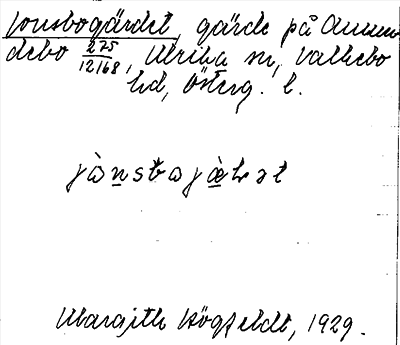 Jonsbogärdet, gärde på Ammn
debo 275/12168, Ulrika sn, Valkebo
hd, Österg. l.
jònsbojælət
Margith Högfeldt, 1929.